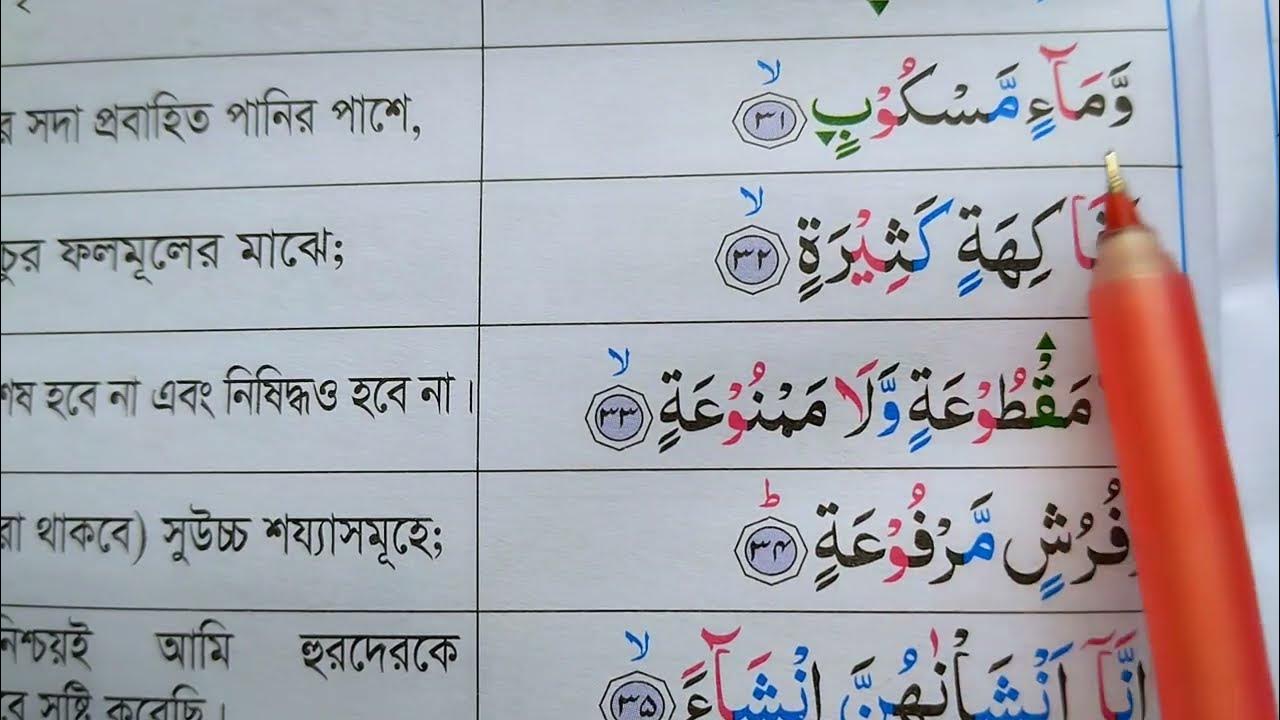 সদা প্রবাহিত পানির পাশে, وَّمَآءٍ مَّسْكُوْبٍ ۙ ٣١
ফলমূলের মাঝে; كِهَةٍ كَثِيْرَةٍ ۙ ٣٢
হবে না এবং নিষিদ্ধও হবে না। مَقْطُوْعَةٍ وَّلَا مَمْنُوْعَةٍ ۙ ٣٣
থাকবে) সুউচ্চ শয্যাসমূহে; فُرُشٍ مَّرْفُوْعَةٍ ؕ ٣٤
আমি হুরদেরকে اِنَّآ اَنْشَاْنٰهُنَّ اِنْشَآءً ۙ ٣٥
সৃষ্টি করেছি।